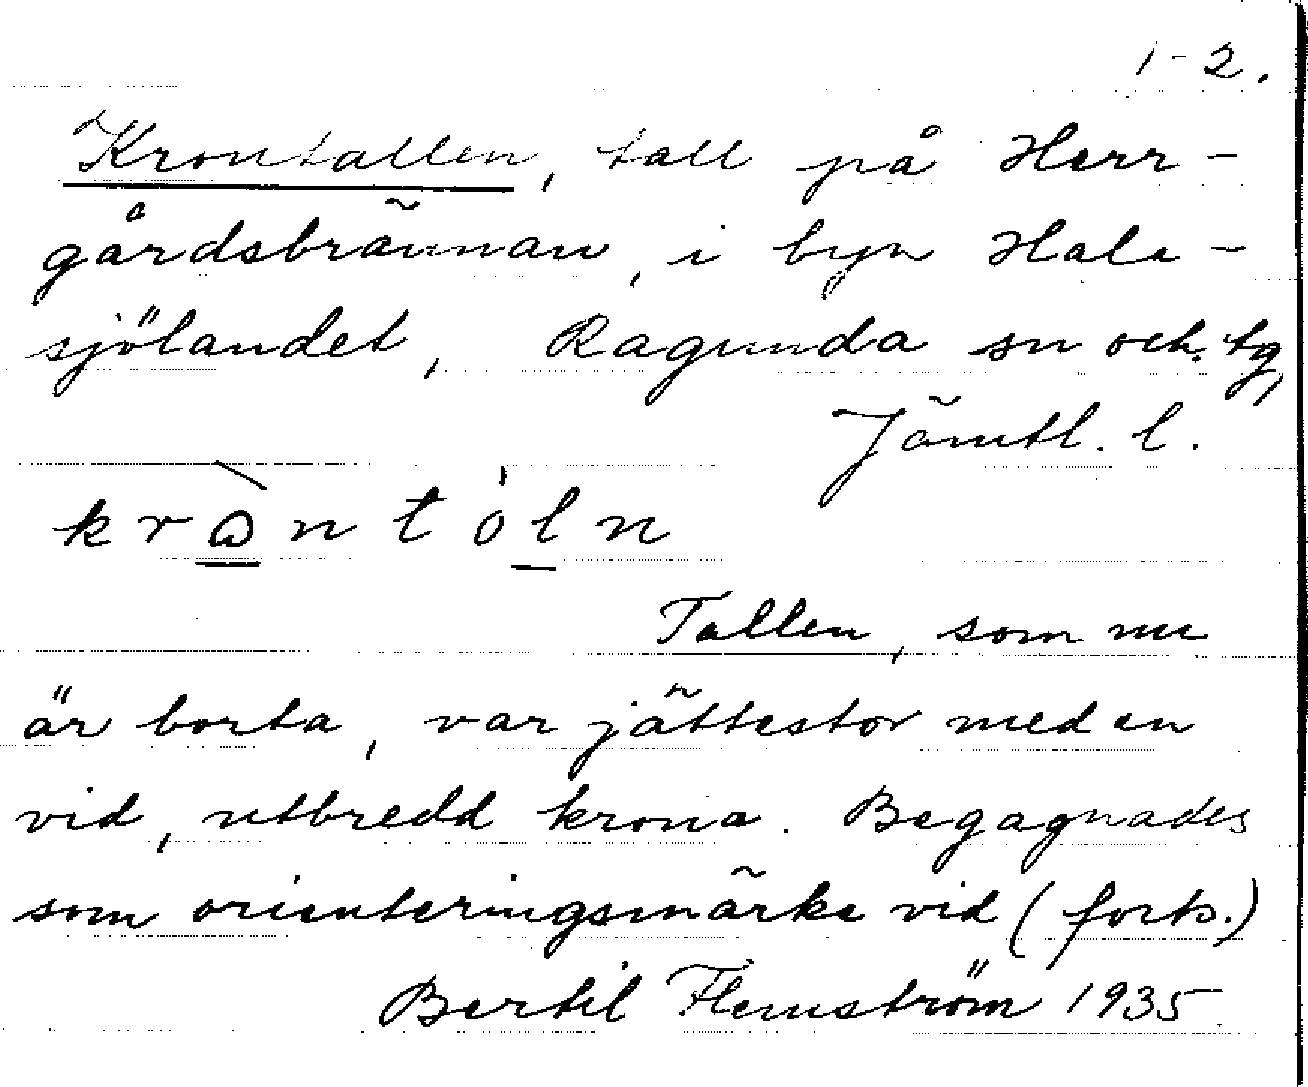 1-2.
Krontallen, tall på Herr-
gårdsbrännan, i byn Hale-
sjölandet, Ragunda sn och tg,
Jämtl. l.
kròntóln
Tallen, som nu
är borta, var jättestor med en
vid, utbredd krona. Begagnades
som orienteringsmärke vid (forts.)
Bertil Flemström 1935